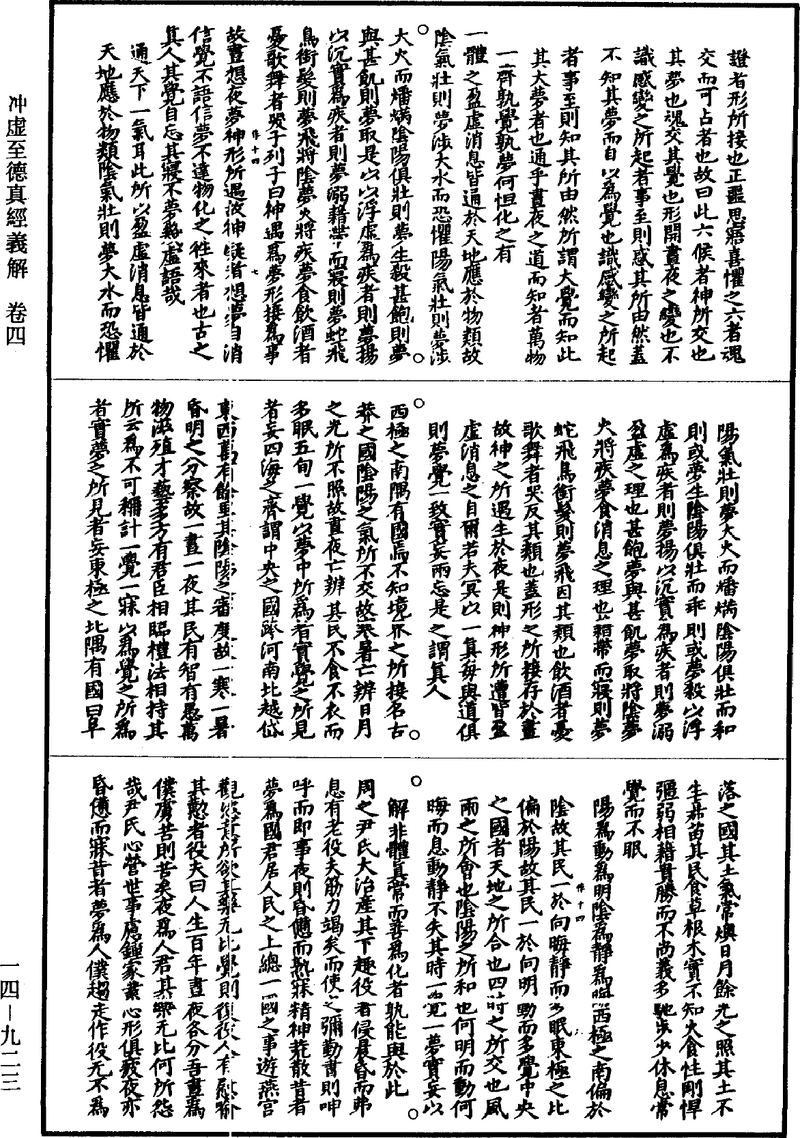 冲虛至德真經義解 卷四
證者形所接也正噩思寤喜懼之六者魂
交而可占者也故曰此六候者神所交也
其夢也魂交其覺也形開晝夜之變也不
識感變之所起者事至則感其所由然蓋
不知其夢而自以為覺也識感變之所起
者事至則知其所由然所謂大覺而知此
其大夢者也通乎晝夜之道而知者萬物
一齊孰覺孰夢何怛化之有
一體之盈虛消息皆通於天地應於物類故
陰氣壯則夢涉大水而恐懼陽氣壯則夢涉
大火而燔焫陰陽俱壯則夢生殺甚飽則夢
與甚飢則夢取是以以浮虛為疾者則夢揚
以沉實為疾者則夢溺藉帶而寢則夢蛇飛
鳥銜髮則夢飛將陰夢火將疾夢食飲酒者
憂歌舞者哭子列子曰神遇為夢形接為事
故晝想夜夢神形所遇故神凝者想夢自消
信覺不語信夢不達物化之往來者也古之
真人其覺自忘其寢不夢幾虛語哉
通天下一氣耳此所以盈虛消息皆通於
天地應於物類陰氣壯則夢大水而恐懼
陽氣壯則夢大火而燔焫陰陽俱壯而和
則或夢生陰陽俱壯而乖則或夢殺以浮
虛為疾者則夢揚以沉實為疾者則夢溺
盈虛之理也甚飽夢與甚飢夢取將陰夢
火將疾夢食消息之理也藉帶而寢則夢
蛇飛鳥銜髮則夢飛因其類也飲酒者憂
歌舞者哭反其類也蓋形之所接存於晝
故神之所遇生於夜是則神形所遭皆盈
虛消息之自爾若夫冥以一真毋與道俱
則夢覺一致實妄兩忘是之謂真人
西極之南隅有國焉不知境界之所接名古
莽之國陰陽之氣所不交故寒暑亡辨日月
之光所不照故晝夜亡辨其民不食不衣而
多眠五旬一覺以夢中所為者實覺之所見
者妄四海之齊謂中央之國跨河南北越岱
東西萬有餘里其陰陽之審度故一寒一暑
昏明之分察故一晝一夜其民有智有愚萬
物滋殖才藝多方有君臣相臨禮法相持其
所云為不可稱計一覺一寐以為覺之所為
者實夢之所見者妄東極之北隅有國曰阜
落之國其土氣常燠日月餘光之照其土不
生嘉苗其民食草根木實不知火食性剛悍
彊弱相藉貴勝而不尚義多馳步少休息常
覺而不眠
陽為動為明陰為靜為晦西極之南偏於
陰故其民一於向晦靜而多眠東極之北
偏於陽故其民一於向明動而多覺中央
之國者天地之所合也四時之所交也風
雨之所會也陰陽之所和也何明而動何
晦而息動靜不失其時一覺一夢實妄以
解非體真常而善為化者孰能與於此
周之尹氏大治產其下趣役者侵晨昏而弗
息有老役夫筋力竭矣而使之彌勤晝則呻
呼而即事夜則昏憊而熟寐精神荒散昔昔
夢為國君居人民之上總一國之事遊燕宮
觀恣意所欲其樂无比覺則復役人有慰喻
其懃者役夫曰人生百年晝夜各分吾晝為
僕虜苦則苦矣夜為人君其樂无比何所怨
哉尹氏心營世事慮鍾家業心形俱疲夜亦
昏憊而寐昔昔夢為人僕趨走作役无不為
一四—九二三